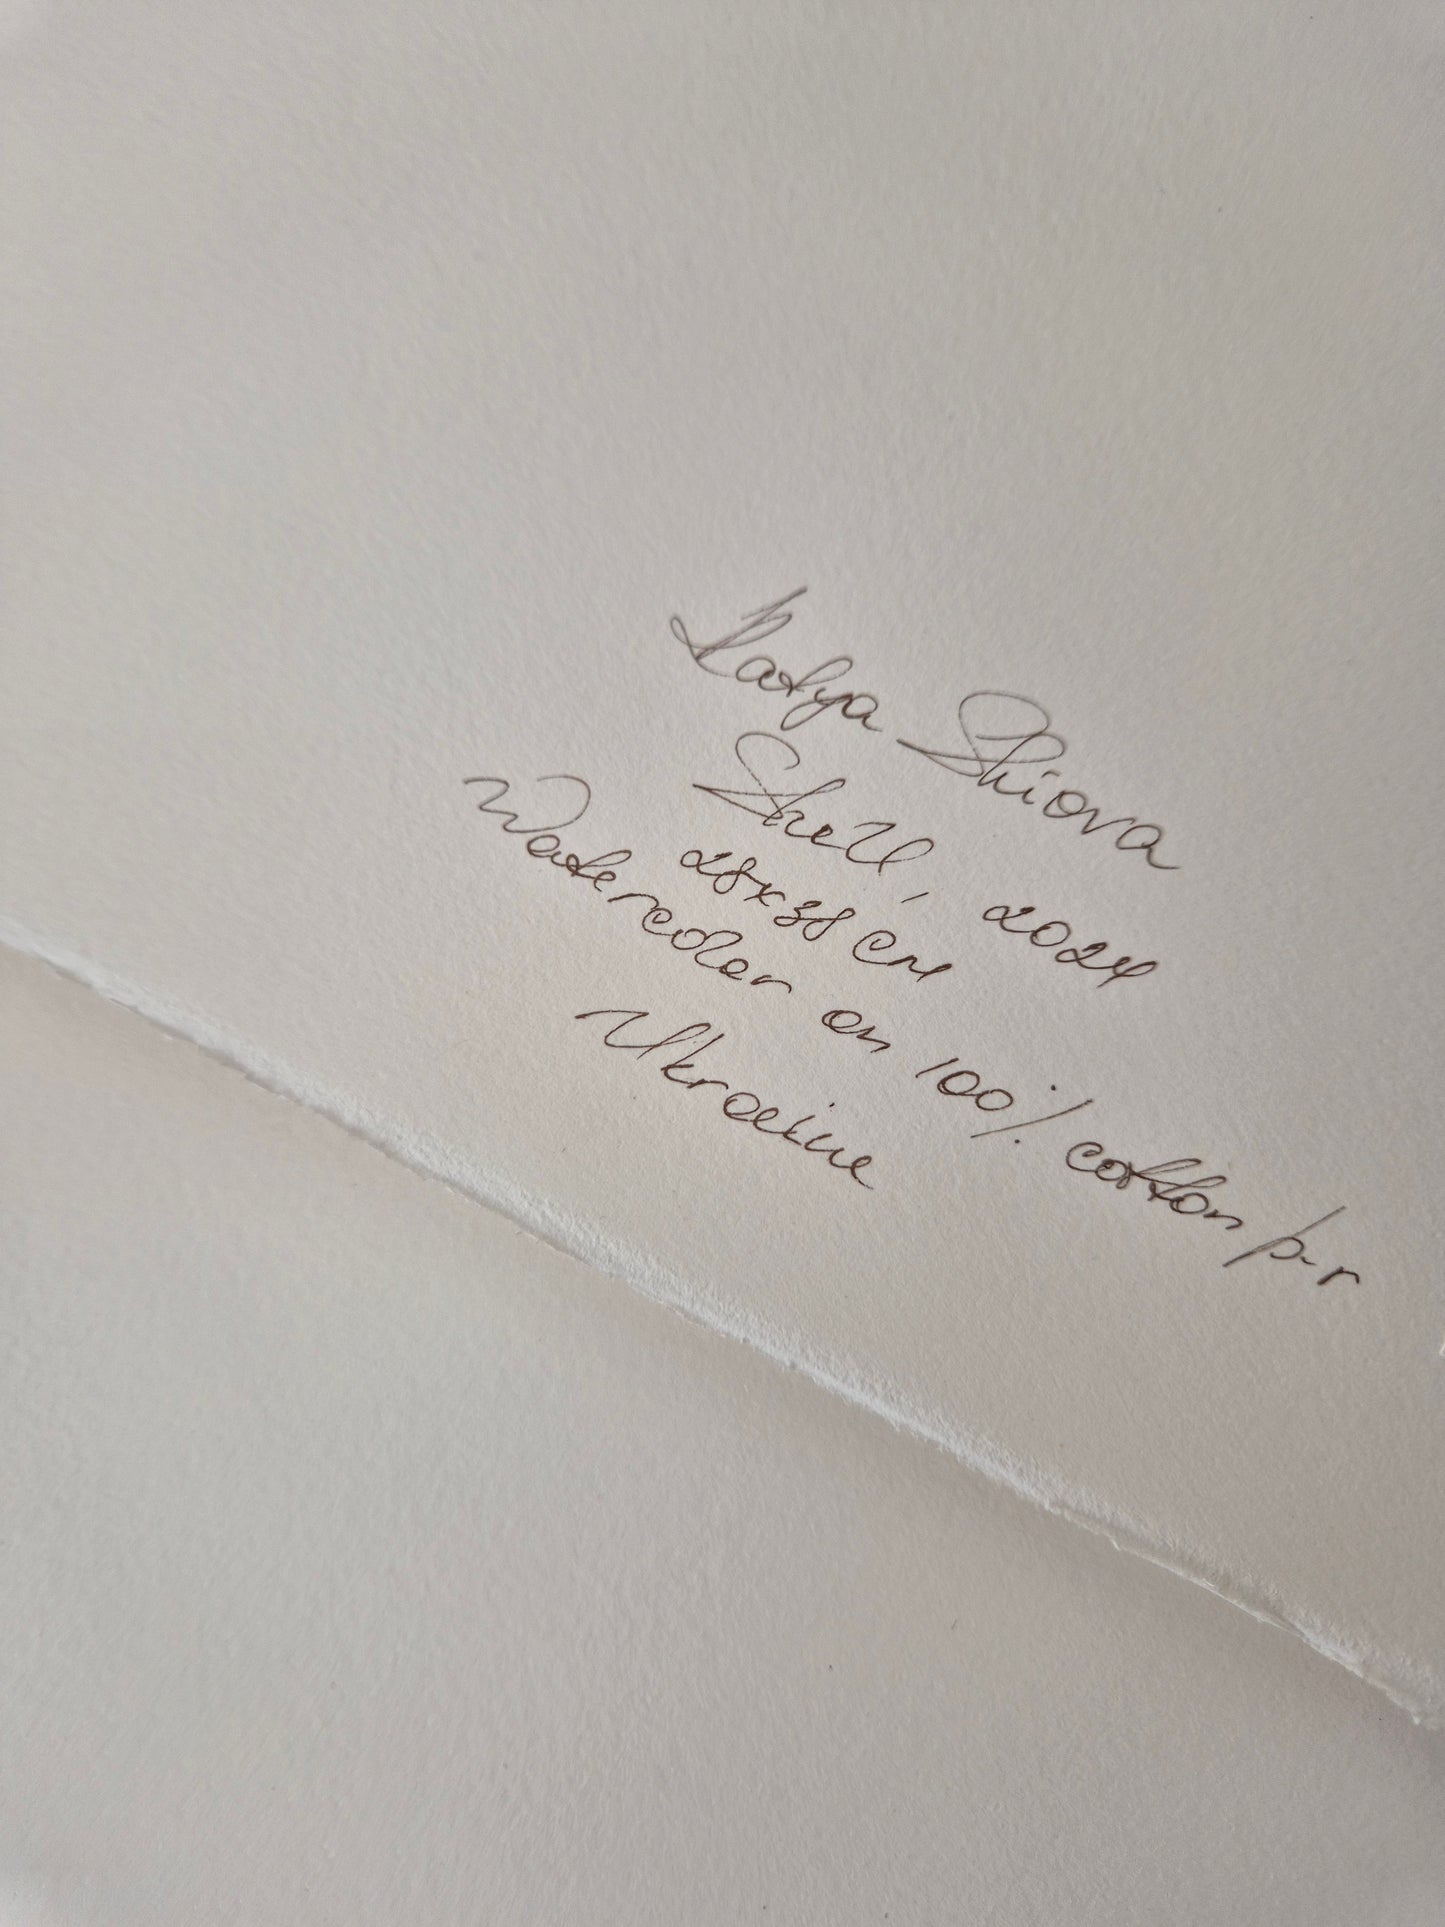 Katya Shiova
Shell, 2024
28x38 cm
Watercolor on 100% cotton p-r
Ukraine